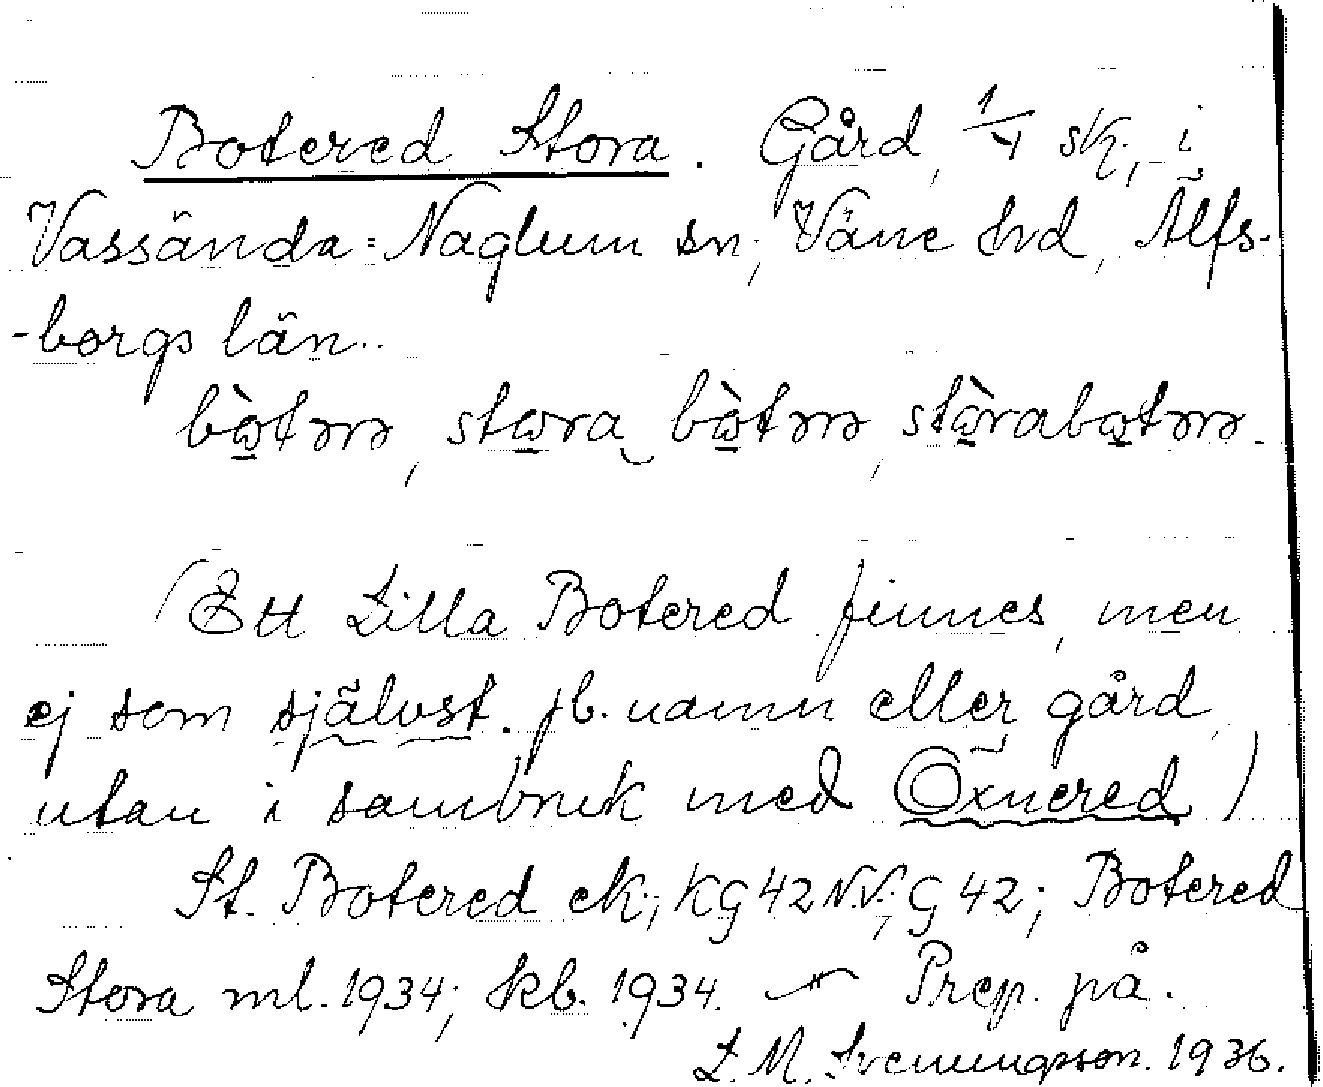 Botered Stora. Gård, 1/4 sk., i
Vassända-Naglum sn, Väne hd, Älfs-
-borgs län..
(Ett Lilla Botered finnes, men
ej som självst. jb. namn eller gård,
utan i sambruk med Öxnered)
St. Botered ek; KG 42 N.V.; G 42; Botered
Stora ml. 1934; kb. 1934. Prep. på.
L. M. Svenungsson. 1936.